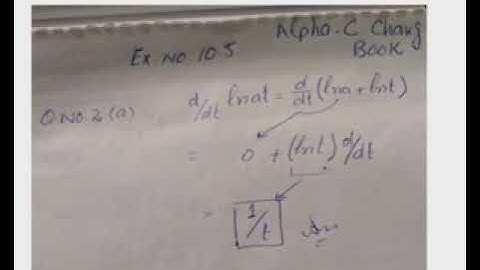 Alpha.C Chang
Book
Ex No 10.5
Q No. 2 (a) d/dt ln at = d/dt (ln a + ln t)
= 0 + (ln t) d/dt
= 1/t Ans